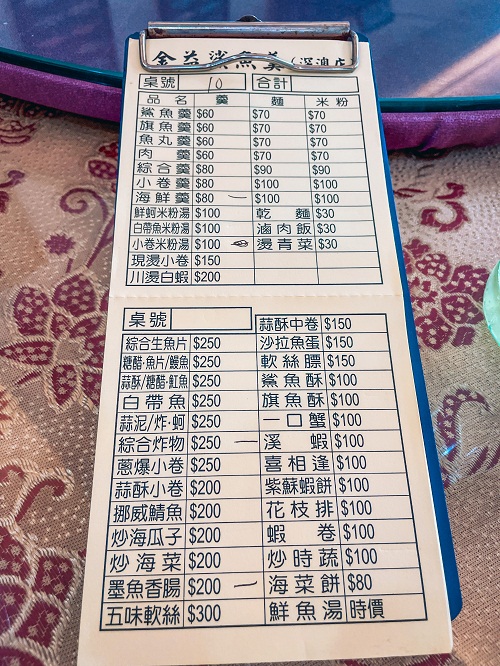 金益鯊魚羹(深澳店
桌號 10 合計
品名 羹 麵 米粉
鯊魚羹 $60 $70 $70
旗魚羹 $60 $70 $70
魚丸羹 $60 $70 $70
肉羹 $60 $70 $70
綜合羹 $80 $90 $90
小卷羹 $80 $100 $100
海鮮羹 $80 $100 $100
鮮蚵米粉湯 $100 乾麵 $30
白帶魚米粉湯 $100 滷肉飯 $30
小卷米粉湯 $100 燙青菜 $30
現燙小卷 $150
川燙白蝦 $200
桌號 蒜酥中卷 $150
綜合生魚片 $250 沙拉魚蛋 $150
糖醋·魚片/鰻魚 $250 軟絲膘 $150
蒜酥/糖醋·魟魚 $250 鯊魚酥 $100
白帶魚 $250 旗魚酥 $100
蒜泥/炸·蚵 $250 一口蟹 $100
綜合炸物 $250 一 溪蝦 $100
蔥爆小卷 $250 喜相逢 $100
蒜酥小卷 $200 紫蘇蝦餅 $100
挪威鯖魚 $200 花枝排 $100
炒海瓜子 $200 蝦卷 $100
炒海菜 $200 炒時蔬 $100
墨魚香腸 $200 一 海菜餅 $80
五味軟絲 $300 鮮魚湯 時價